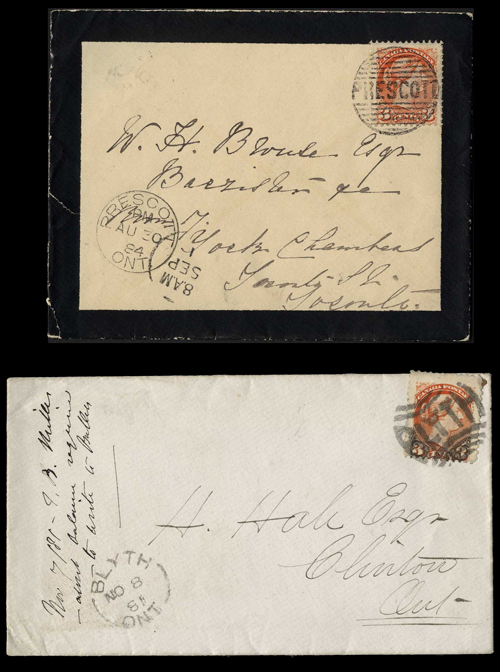 PRESCOTT
W. H. Bronse Esqr
Barrister &c
Room 7.
York Chambers
Toronto St.
Toronto.
PRESCOTT
PM
AU 30
84
ONT
8AM
SEP
1
3 CENTS 3
Nov 7/81 -
to write to
H. Hale Esqr
Clinton
Ont-
BLYTH
NO 8
81
ONT